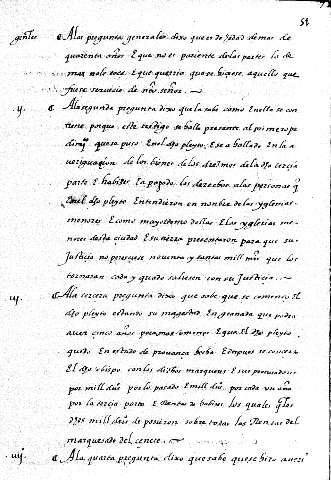 52
gen̄les A las pregunta generales dixo que es de hedad de mas de
quarenta años E que no es pariente de las partes lo de
mas no le toca E que querria que se hiziese aquello que
fuese servicio de nr̄o señor
ij A la segunda pregunta dixo que la sabe como En ella se con
tiene porque este testigo se hallo presente al primero pe
dim̄o que se puso En el dh̄o pleyto E se a hallado En la a
veriguaçion de los bienes de los diezmos de la dh̄a tercia
parte E habizes En pagado los derechos a las personas q̄
En el dh̄o pleyto Entendieron en nonbre de las yglesias
menores E como mayordomo dellas E las yglesias me
nores desta ciudad E su tierra presentaron para que su
Justicia no pidiesen noventa y tantas mill mr̄s que los
tornaran cada y quando saliesen con su Justicia
iij A la tercera pregunta dixo que sabe que se començo El
dh̄o pleyto estando su magestad En granada que podra
aver cinco años poco mas o menos E que El dh̄o pleyto
quedo En estado de provança hecha E despues se concerto
El dh̄o obispo con los dichos marqueses E sus procuradores
por mill du̅s por lo pasado E mill du̅s por cada un año
por la tercia parte E Rentas de habizes los quales dh̄os
dos mill du̅s se pusieron sobre todas las Rentas del
marquesado del cenete
iiij A la quarta pregunta dixo que sabe que se hizo averi